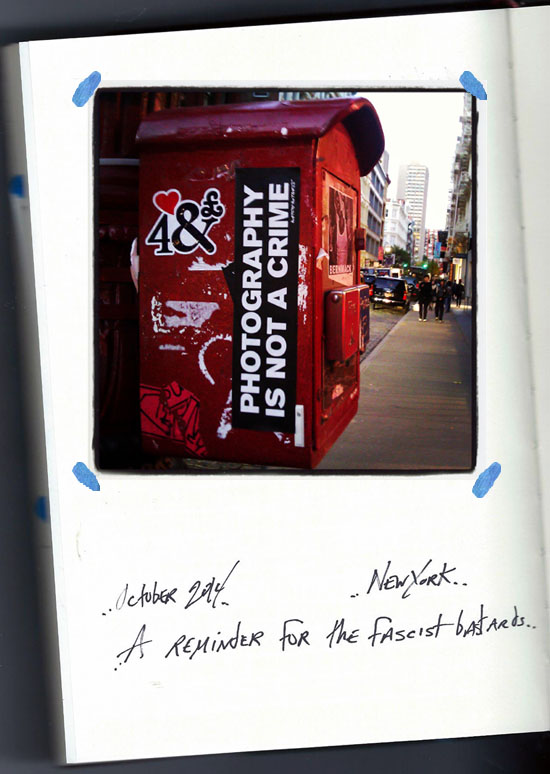 4&£
PHOTOGRAPHY
IS NOT A CRIME
BERNHACK
..October 2014.
..New York..
..A REMINDER FOR the fascist bastards..